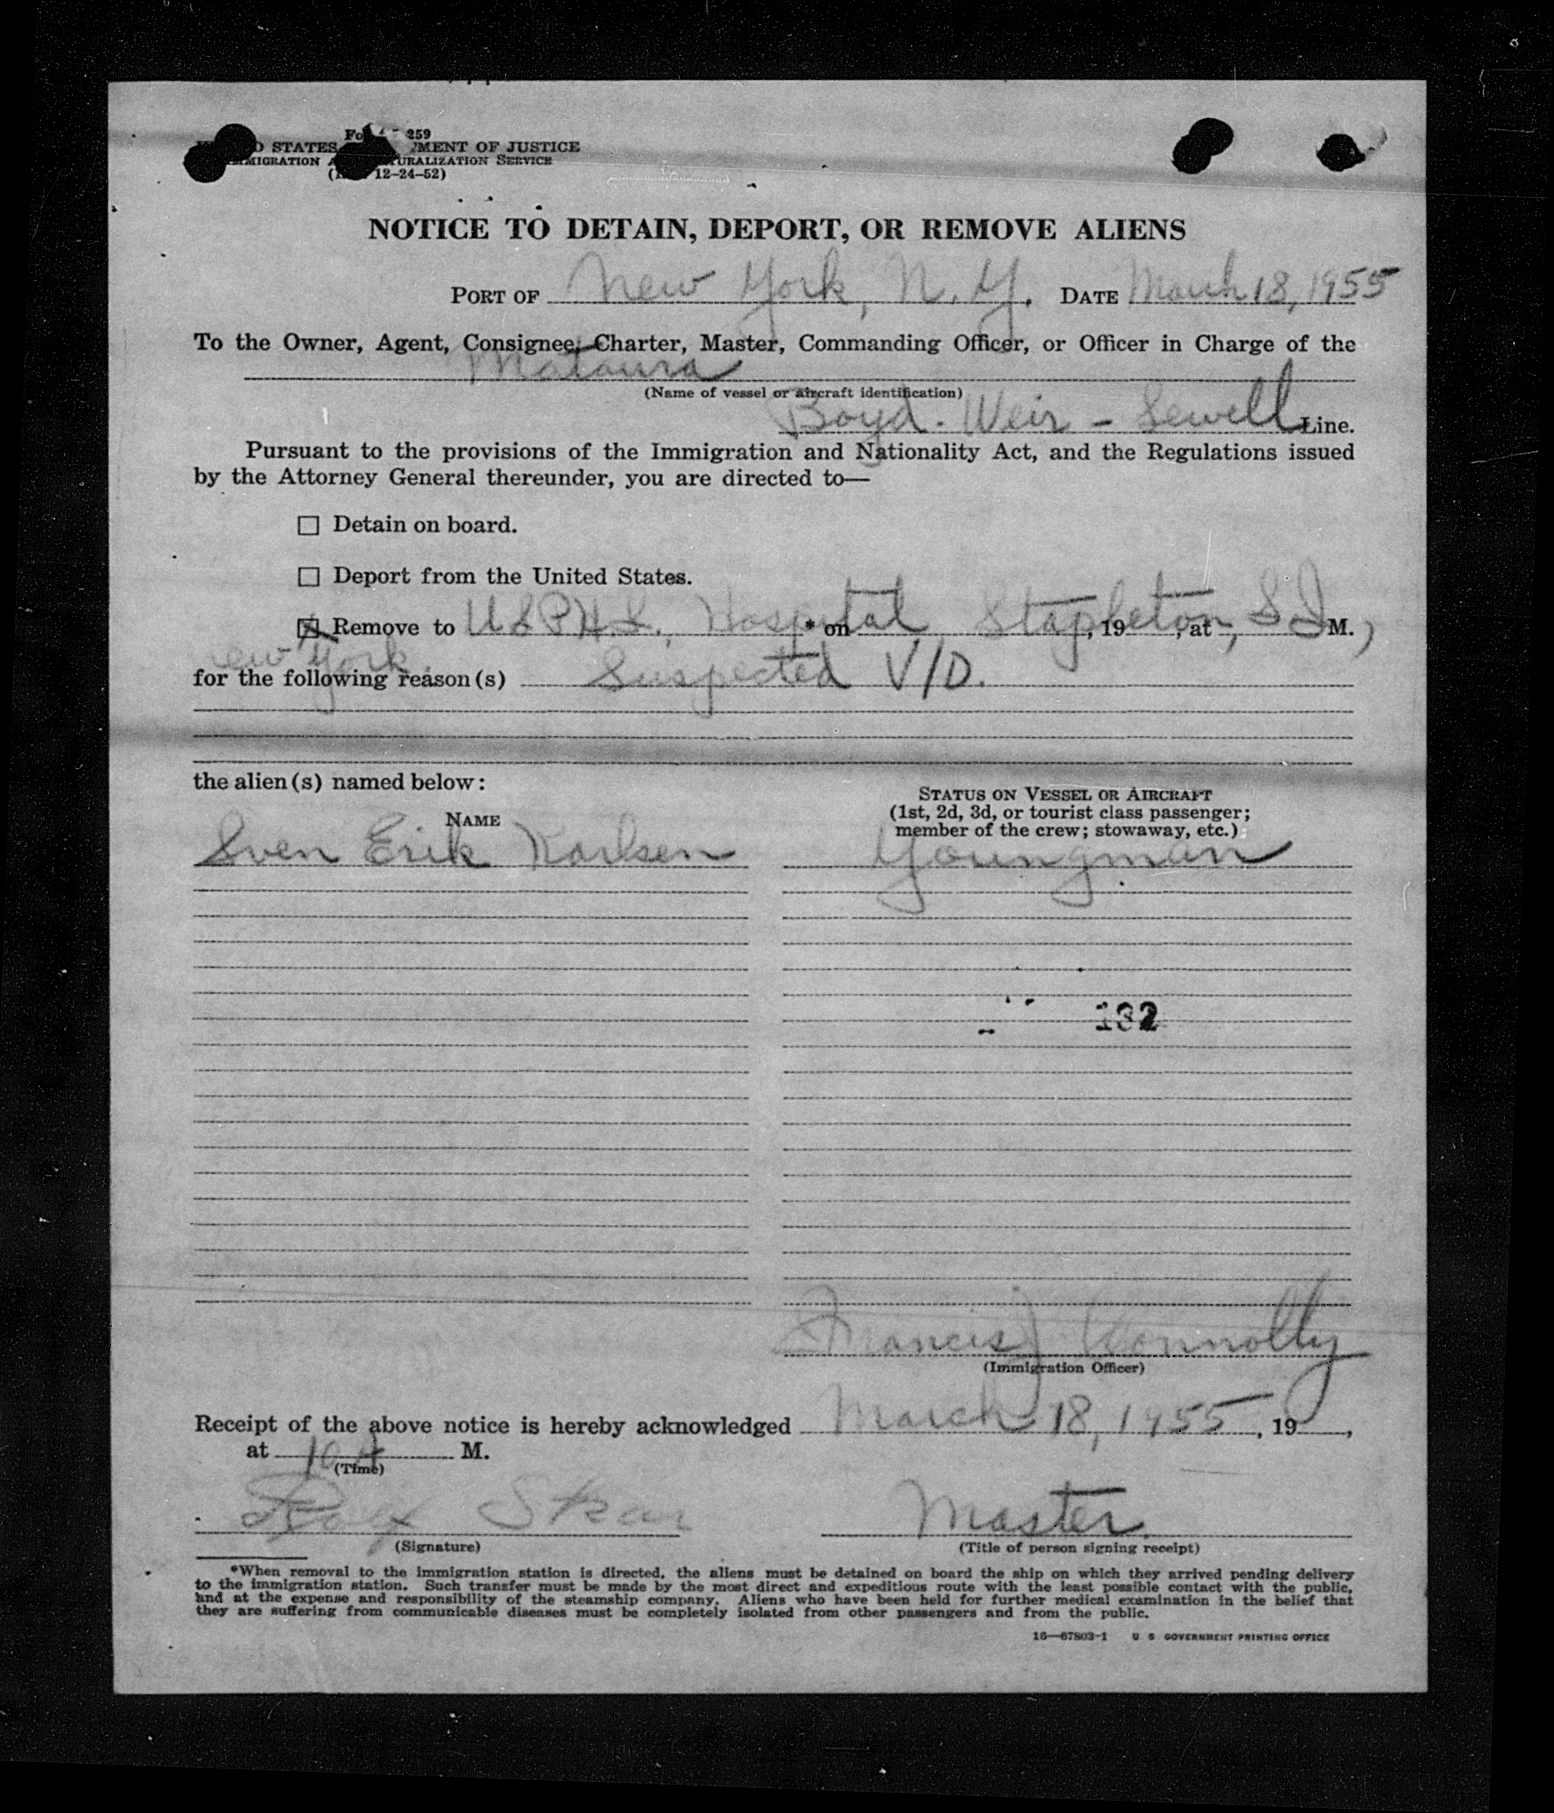 Fo 259
STATES MENT OF JUSTICE
MIGRATION A TURALIZATION SERVICE
12-24-52)
NOTICE TO DETAIN, DEPORT, OR REMOVE ALIENS
PORT OF New York, N.Y. DATE March 18, 1955
To the Owner, Agent, Consignee, Charter, Master, Commanding Officer, or Officer in Charge of the
Mataura
(Name of vessel or aircraft identification)
Boyd-Weir-Sewell Line.
Pursuant to the provisions of the Immigration and Nationality Act, and the Regulations issued
by the Attorney General thereunder, you are directed to—
☐ Detain on board.
☐ Deport from the United States.
☒ Remove to U.S.P.H.S. Hospital, Stapleton, S.I., * on , 19 , at M.
ew York.
for the following reason(s) Suspected V/D.
the alien(s) named below:
NAME
STATUS ON VESSEL OR AIRCRAFT
(1st, 2d, 3d, or tourist class passenger;
member of the crew; stowaway, etc.)
Sven Erik Karlsen Youngman
132
Francis J Connolly
(Immigration Officer)
Receipt of the above notice is hereby acknowledged March 18, 1955, 19 ,
at 10 A M.
(Time)
Master.
(Signature) (Title of person signing receipt)
*When removal to the immigration station is directed, the aliens must be detained on board the ship on which they arrived pending delivery
to the immigration station. Such transfer must be made by the most direct and expeditious route with the least possible contact with the public,
and at the expense and responsibility of the steamship company. Aliens who have been held for further medical examination in the belief that
they are suffering from communicable diseases must be completely isolated from other passengers and from the public.
16—67803-1 U S GOVERNMENT PRINTING OFFICE